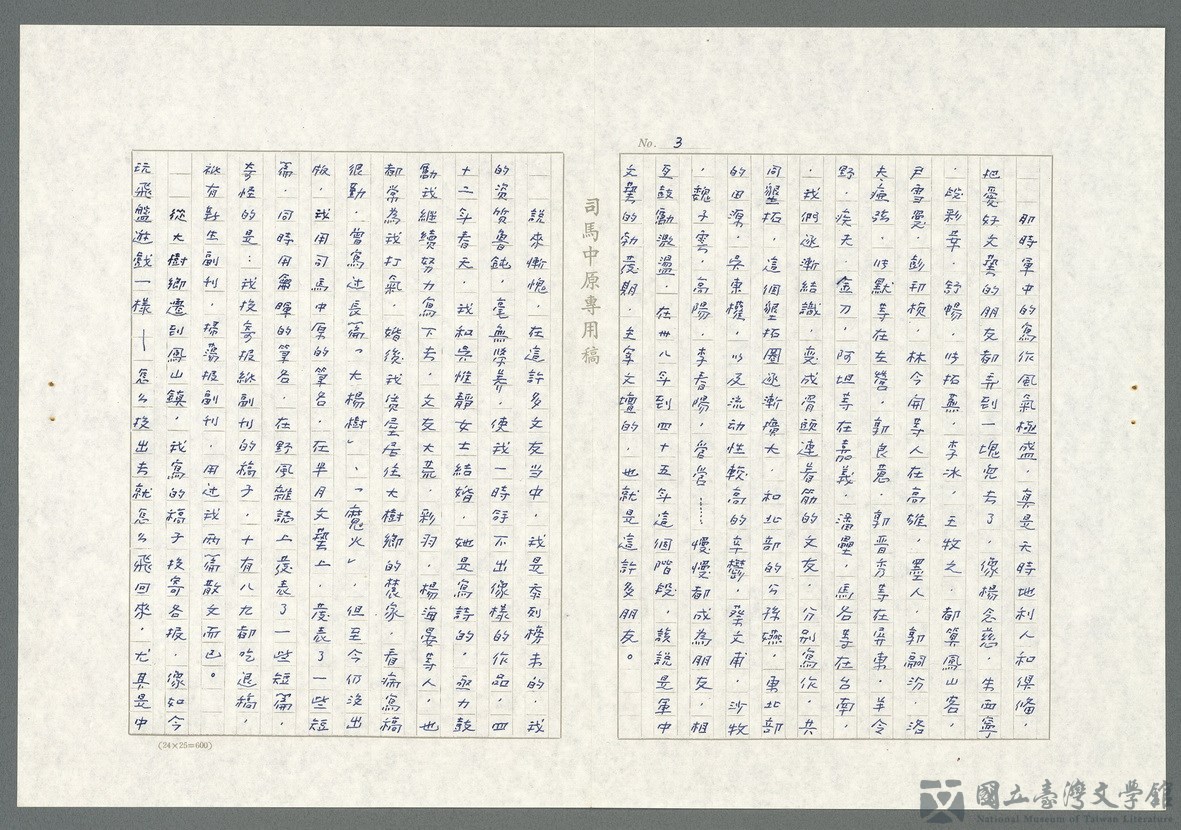 No. 3
那時軍中的寫作風氣極盛，真是天時地利人和俱備，
把愛好文藝的朋友都弄到一塊兒去了，像楊念慈，朱西甯
，段彩華，舒暢，司拓蕪，李冰，王牧之，都算鳳山客，
尹雪曼，彭邦楨，林今開等人在高雄，墨人，郭嗣汾，洛
夫，瘂弦，司默等在左營，郭良蕙，郭晋秀等在屏東，羊令
野，疾夫，金刀，阿坦等在嘉義，潘壘，馬各等在台南，
，我們逐漸結識，變成骨頭連着筋的文友，分別寫作，共
同墾拓，這個墾拓圈逐漸擴大，和北部的公孫嬿，東北部
的田湜，吳東權，以及流动性較高的辛鬱，蔡文甫，沙牧
，魏子雲，高陽，李春陽，管管……慢慢都成為朋友，相
互鼓勵激盪，在卅八年到四十五年這個階段，該說是軍中
文藝的勃發期，主宰文壇的，也就是這許多朋友。
司馬中原專用稿
說來慚愧，在這許多文友当中，我是忝列榜末的，我
的資質魯鈍，毫無學養，使我一時寫不出像樣的作品，四
十二年春天，我和吳惟靜女士結婚，她是寫詩的，亟力鼓
勵我繼續努力寫下去，文友大荒，彩羽，楊海晏等人，也
都常為我打氣，婚後我賃屋居住大樹鄉的農家，看病寫稿
很勤，曾寫过長篇「大楊樹」、「魔火」，但至今仍沒出
版，我用司馬中原的筆名，在半月文藝上，發表了一些短
篇，同時用蕭暉的筆名，在野風雜誌上發表了一些短篇，
奇怪的是：我投寄报紙副刊的稿子，十有八九都吃退稿，
祇有新生副刊，掃蕩报副刊，用过我兩篇散文而已。
從大樹鄉遷到鳳山鎮，我寫的稿子投寄各报，像如今
玩飛盤遊戲一樣——怎么投出去就怎么飛回來，尤其是中
(24×25=600)
國立臺灣文學館
National Museum of Taiwan Literature